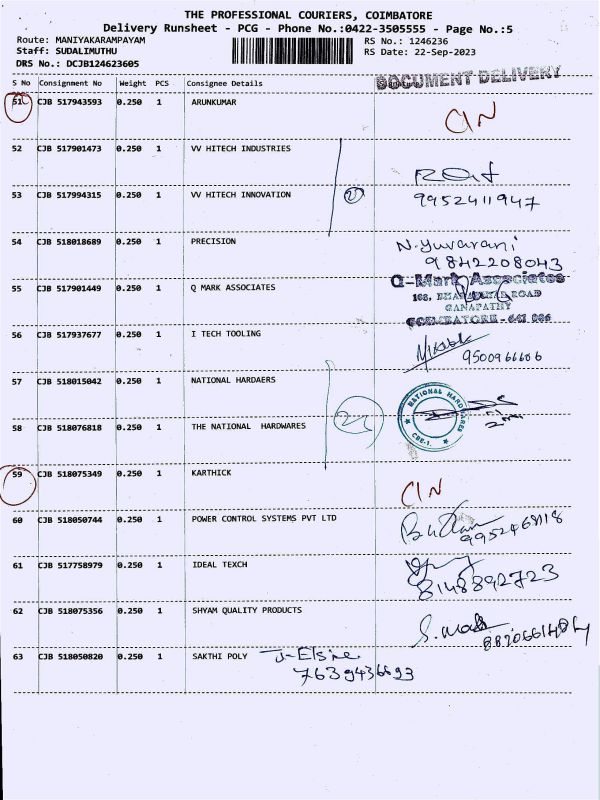 THE PROFESSIONAL COURIERS, COIMBATORE
Delivery Runsheet - PCG - Phone No.:0422-3505555 - Page No.:5
Route: MANIYAKARAMPAYAM RS No.: 1246236
Staff: SUDALIMUTHU RS Date: 22-Sep-2023
DRS No.: DCJB124623605
DOCUMENT DELIVERY
S No Consignment No Weight PCS Consignee Details
51 CJB 517943593 0.250 1 ARUNKUMAR
CIN
52 CJB 517901473 0.250 1 VV HITECH INDUSTRIES
53 CJB 517994315 0.250 1 VV HITECH INNOVATION
9952411947
54 CJB 518018689 0.250 1 PRECISION N.Yuvarani
9842208043
55 CJB 517901449 0.250 1 Q MARK ASSOCIATES Q-Mark Associates
ROAD
GANAPATHY
COIMBATORE - 641 006
56 CJB 517937677 0.250 1 I TECH TOOLING
9500966606
57 CJB 518015042 0.250 1 NATIONAL HARDAERS
NATIONAL HARDWARES
CBE-1.
58 CJB 518076818 0.250 1 THE NATIONAL HARDWARES
59 CJB 518075349 0.250 1 KARTHICK
CIN
60 CJB 518050744 0.250 1 POWER CONTROL SYSTEMS PVT LTD
61 CJB 517758979 0.250 1 IDEAL TEXCH
8148892723
62 CJB 518075356 0.250 1 SHYAM QUALITY PRODUCTS
63 CJB 518050820 0.250 1 SAKTHI POLY J-Elsine
7639436693